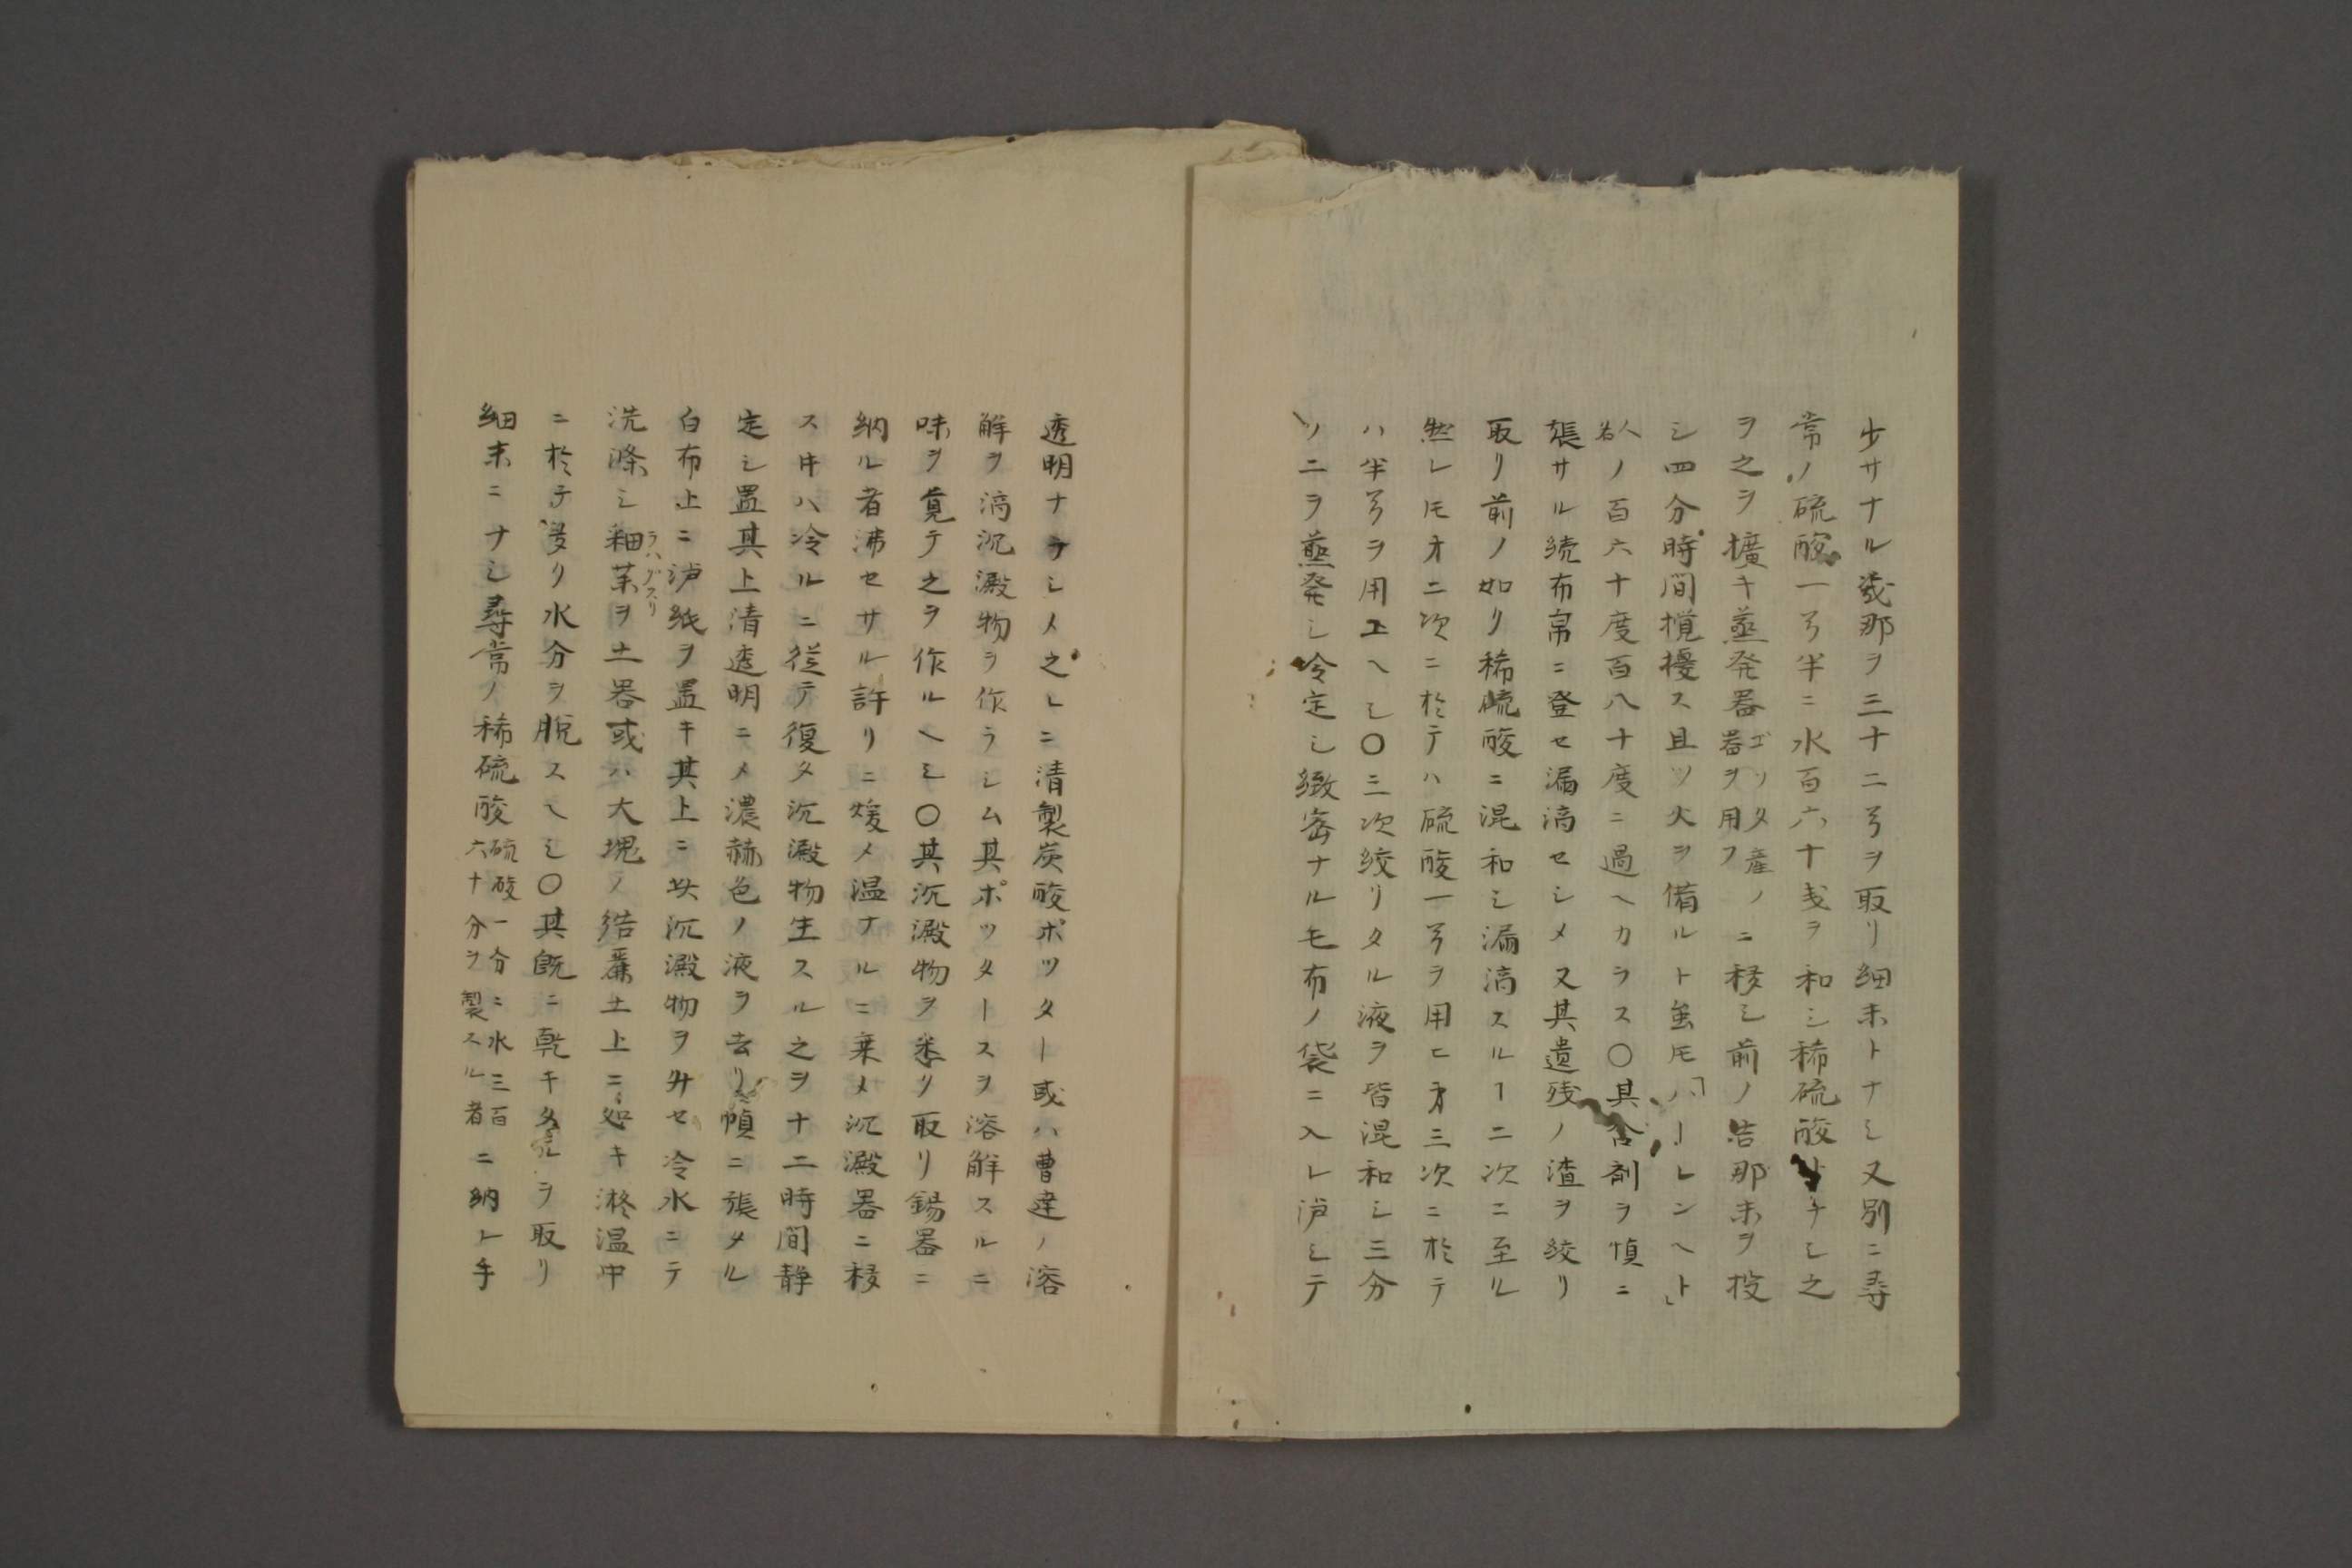 少サナル幾那ヲ三十二ヲ取リ細末トナシ又別ニ尋
常ノ硫酸一半ニ水百六十戔ヲ和シ稀硫酸トナシ之
ヲ之ヲ擴キ蒸発器ゴツタ産ノ器ヲ用フニ移シ前ノ幾那末ヲ投
シ四分時間攪擾ス且ツ火ヲ備ルト雖𪜈「ハーレンヘト」
人ノ百六十度百八十度ニ過ヘカラス〇其合剤ヲ幀ニ
張サル続布帛ニ登セ漏滴セシメ又其遺残ノ渣ヲ絞リ
取リ前ノ如リ稀硫酸ニ混和シ漏滴スルヿ二次ニ至ル
然レ𪜈才二次ニ於テハ硫酸一ヲ用ヒ才三次ニ於テ
ハ半ヲ用エヘシ〇三次絞リタル液ヲ皆混和シ三分
ノ二ヲ蒸発シ冷定シ緻密ナル毛布ノ袋ニ入レ泸シテ
透明ナラシメ之レニ清製炭酸ポツタート或ハ曹達ノ溶
解ヲ滴沉澱物ヲ作ラシム其ポッタースヲ溶解スルニ
味ヲ覚テ之ヲ作ルヘシ〇其沉澱物ヲ悉リ取リ錫器ニ
納ル者沸セサル許リニ煖メ温ナルニ乗メ沉澱器ニ移
ス牛ハ冷ルニ従テ復タ沉澱物生スル之ヲ十二時間静
定シ置其上清透明ニメ濃赫色ノ液ヲ去リ幀ニ張タル
白布上ニ泸紙ヲ置キ其上ニ此沉澱物ヲ升セ冷水ニテ
洗滌シ釉薬ヲハグスリヲ土器或ハ大塊ノ結麗土上ニ処キ滲温中
ニ於テ多リ水分ヲ脱スヘシ〇其既ニ乾キタルヲ取リ
細末ニナシ尋常ノ稀硫酸硫酸一分ニ水三百六十分ヲ製スル者ニ納レ手